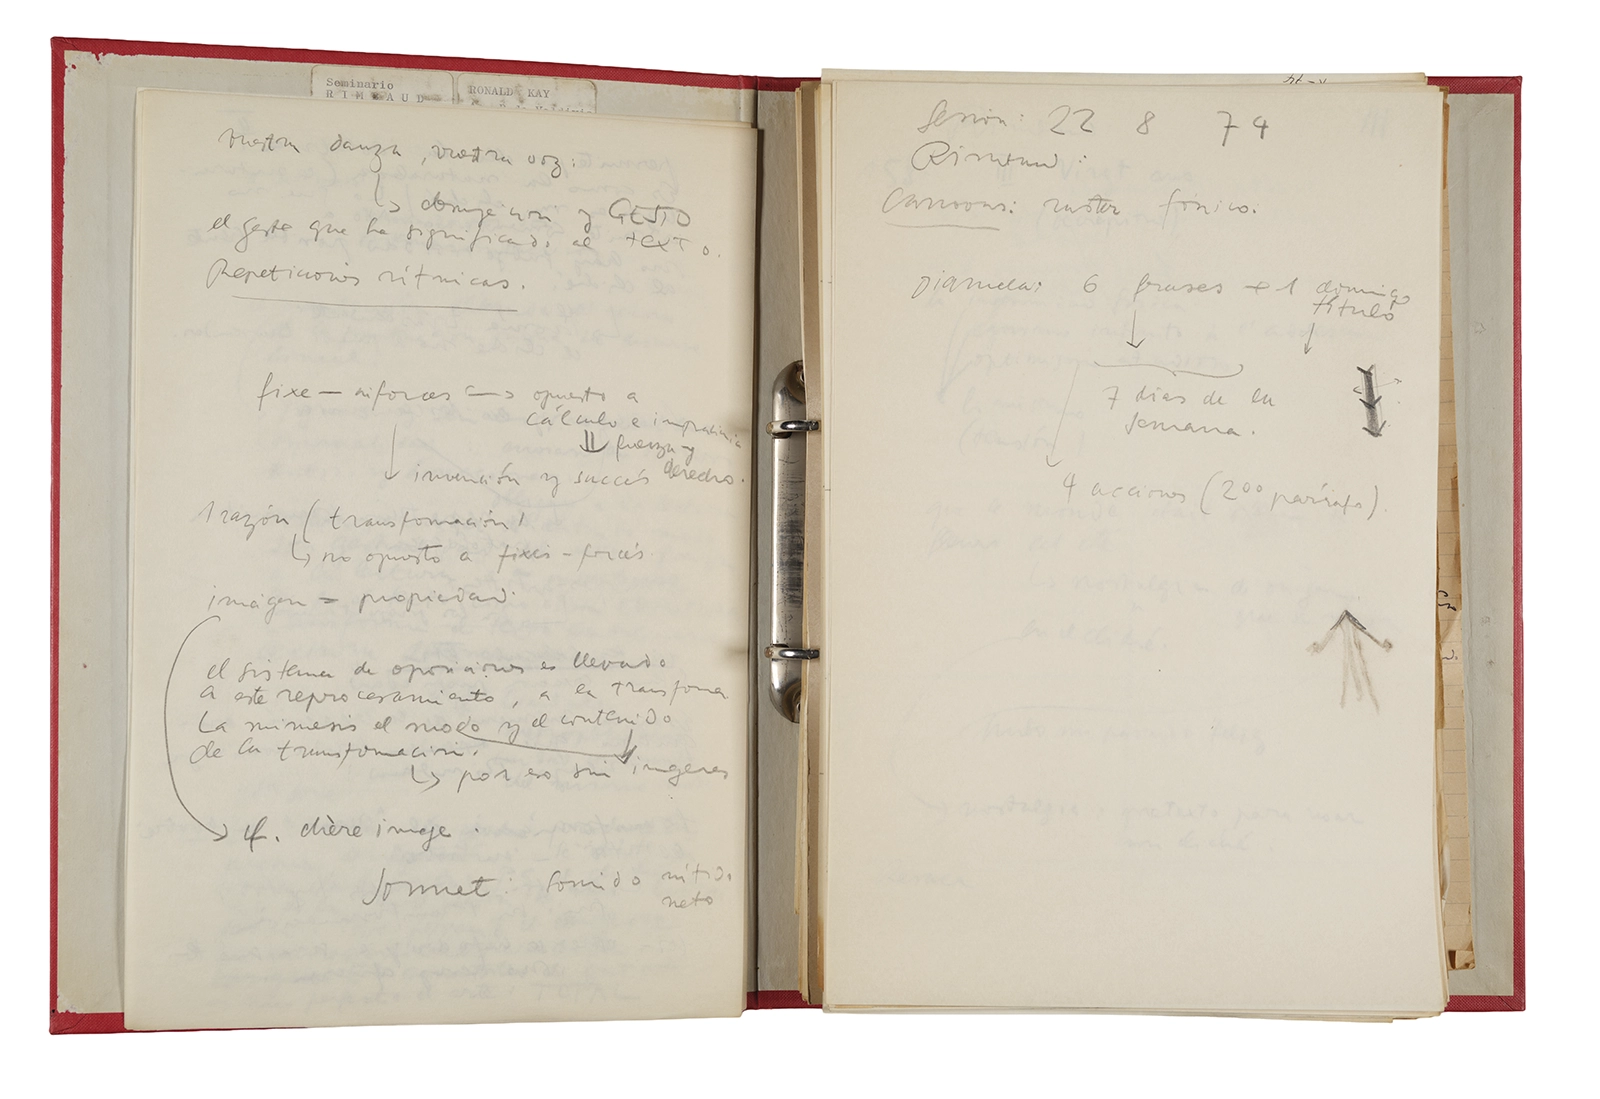 Seminario
RIMBAUD
RONALD KAY
vuestra danza, vuestra voz:
↳ y GESTO
el gesto que ha significado al TEXTO.
Repeticiones rítmicas.
fixe — → opuesto a
cálculo e
⇓ fuerza y
derecho.
↓ invención y succés
1 razón (transformación)
↳ no opuesto a fixes - forcés
imágen = propiedad.
el sistema de oposiciones es llevado
a este reprocesamiento, a la transforma
la mimesis el modo y el contenido
de la transformación.
↳ por eso sin imagenes
cf. chère image.
Sonnet: sonido nítido
neto
Sesión: 22 8 74
Rimbaud:
fónico.
Diamela: 6 frases + 1 domingo
título
7 días de la
semana.
4 acciones (2ºº párrafo).